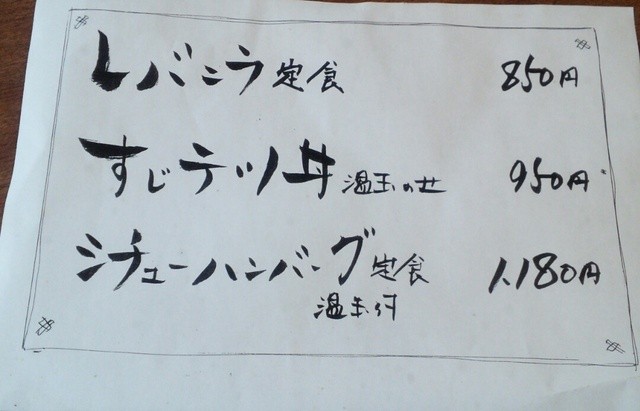 レバニラ定食 850円
すじテツ丼 温玉のせ 950円
シチューハンバーグ定食 1,180円
温玉付